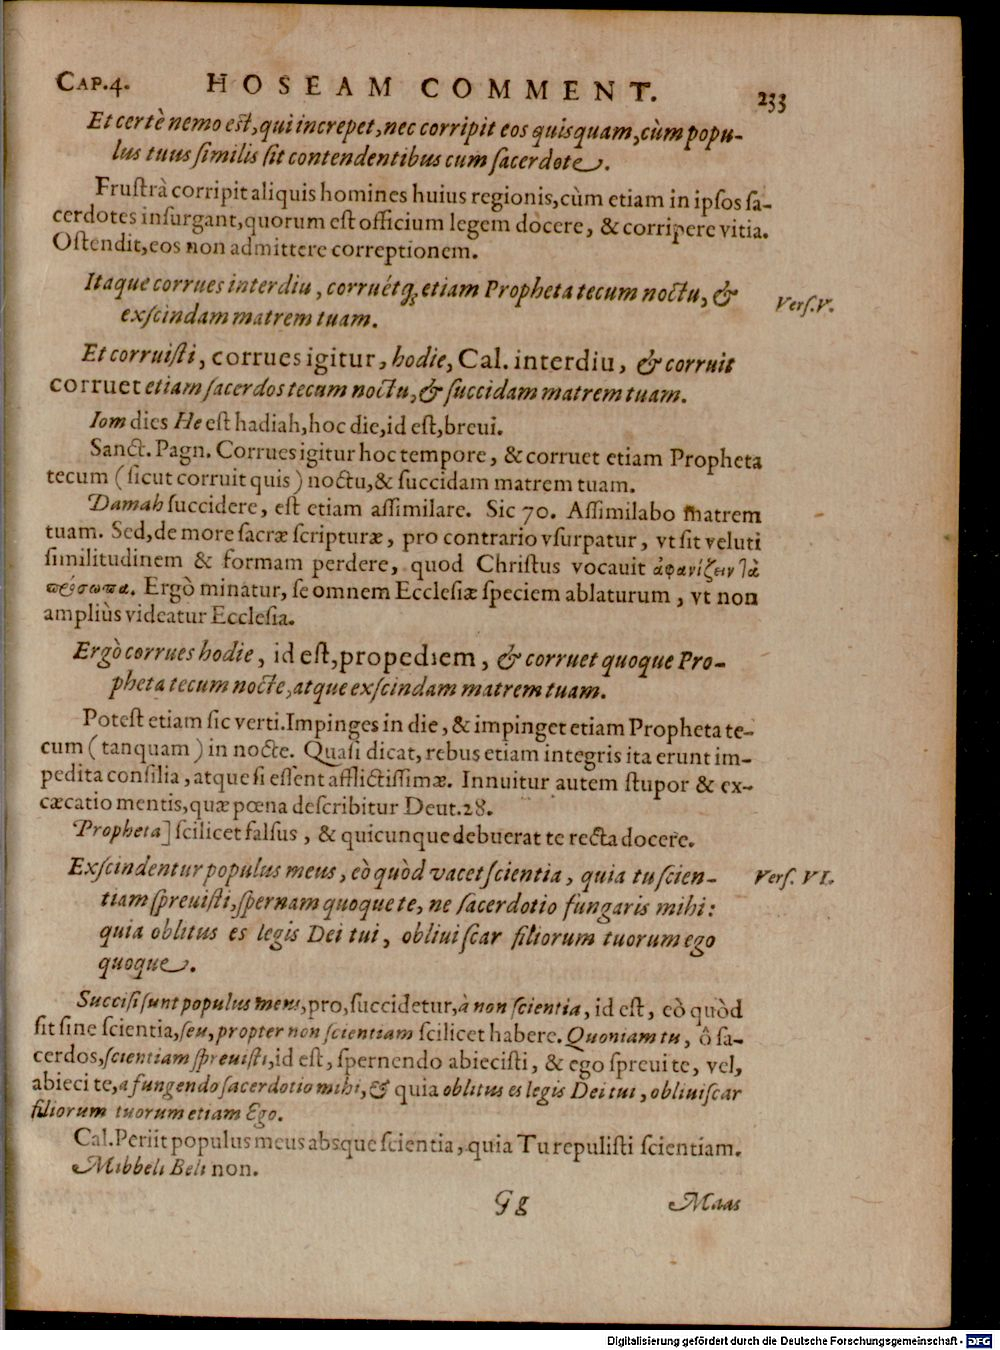 CAP.4. HOSEAM COMMENT. 233
Et certè nemo est, qui increpet, nec corripit eos quisquam, cùm popu-
lus tuus similis sit contendentibus cum sacerdote.
Frustrà corripit aliquis homines huius regionis, cùm etiam in ipsos sa-
cerdotes insurgant, quorum est officium legem docere, & corripere vitia.
Ostendit, eos non admittere correptionem.
Itaque corrues interdiu, corruétq; etiam Propheta tecum noctu, &
Vers. V.
exscindam matrem tuam.
Et corruisti, corrues igitur, hodie, Cal. interdiu, & corruit
corruet etiam sacerdos tecum noctu, & succidam matrem tuam.
Iom dies He est hadiah, hoc die, id est, breui.
Sanct. Pagn. Corrues igitur hoc tempore, & corruet etiam Propheta
tecum (sicut corruit quis) noctu, & succidam matrem tuam.
Damah succidere, est etiam assimilare. Sic 70. Assimilabo matrem
tuam. Sed, de more sacræ scripturæ, pro contrario vsurpatur, vt sit veluti
similitudinem & formam perdere, quod Christus vocauit ἀφανίζειν τὰ
πρόσωπα. Ergò minatur, se omnem Ecclesiæ speciem ablaturum, vt non
ampliùs videatur Ecclesia.
Ergò corrues hodie, id est, propediem, & corruet quoque Pro-
pheta tecum nocte, atque exscindam matrem tuam.
Potest etiam sic verti. Impinges in die, & impinget etiam Propheta te-
cum (tanquam) in nocte. Quasi dicat, rebus etiam integris ita erunt im-
pedita consilia, atque si essent afflictissimæ. Innuitur autem stupor & ex-
cæcatio mentis, quæ pœna describitur Deut.28.
Propheta] scilicet falsus, & quicunque debuerat te recta docere.
Exscindentur populus meus, eò quòd vacet scientia, quia tu scien-
Vers. VI.
tiam spreuisti, spernam quoque te, ne sacerdotio fungaris mihi:
quia oblitus es legis Dei tui, obliuiscar filiorum tuorum ego
quoque.
Succisi sunt populus meus, pro, succidetur, à non scientia, id est, eò quòd
sit sine scientia, seu, propter non scientiam scilicet habere. Quoniam tu, ô sa-
cerdos, scientiam spreuisti, id est, spernendo abiecisti, & ego spreui te, vel,
abieci te, a fungendo sacerdotio mihi, & quia oblitus es legis Dei tui, obliuiscar
filiorum tuorum etiam Ego.
Cal. Periit populus meus absque scientia, quia Tu repulisti scientiam.
Mibbeli Beli non.
Gg Maas
Digitalisierung gefördert durch die Deutsche Forschungsgemeinschaft - DFG